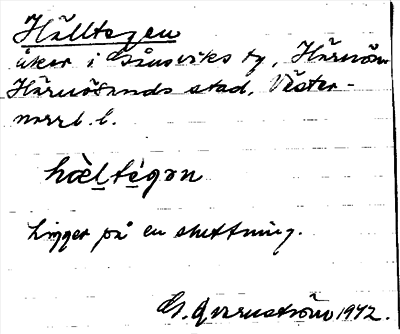 Hälltegen
åker i Gånsviks by, Härnön
Härnösands stad, Väster-
norrl. l.
hæ̀ltègən
Ligger på en sluttning.
G. Qvarnström 1942.